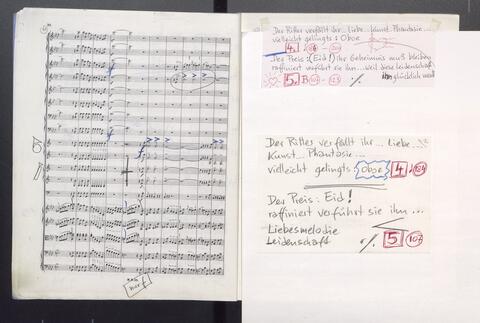 Der Ritter verfällt ihr... Liebe.. Kunst. Phantasie...
vielleicht gelingts: Oboe
4.
Der Preis: (Eid!) ihr Geheimnis muß bleiben
raffiniert verführt sie ihn... weil diese Leidenschaft
glücklich
5. B 107
Der Ritter verfällt ihr... Liebe...
Kunst... Phantasie...
vielleicht gelingts: Oboe 4
Der Preis: Eid!
raffiniert verführt sie ihn...
Liebesmelodie
Leidenschaft 5 107